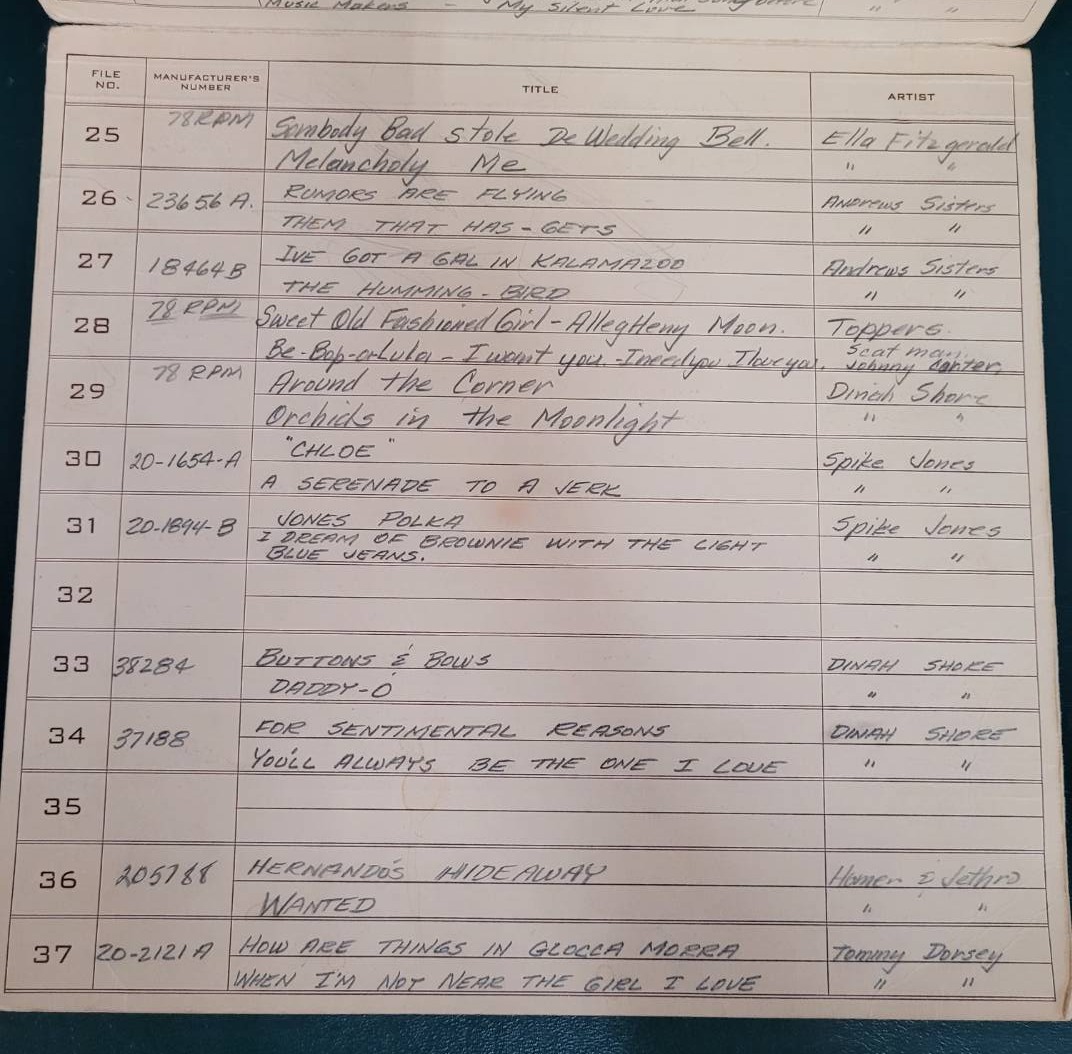 Music Makers - My Silent Love " "
FILE NO. MANUFACTURER'S NUMBER TITLE ARTIST
25 78 RPM Sombody Bad stole De Wedding Bell. Ella Fitzgerald
Melancholy Me " "
26 23656 A. RUMORS ARE FLYING Andrews Sisters
THEM THAT HAS-GETS " "
27 18464B IVE GOT A GAL IN KALAMAZOO Andrews Sisters
THE HUMMING-BIRD " "
28 78 RPM Sweet Old Fashioned Girl - AllegHeny Moon. Toppers.
Be-Bop-a-Lula - I want you.-I need you I love you. Scat man. Johnny Conter.
29 78 RPM Around the Corner Dinah Shore
Orchids in the Moonlight " "
30 20-1654-A "CHLOE" Spike Jones
A SERENADE TO A JERK " "
31 20-1894-B JONES POLKA Spike Jones
I DREAM OF BROWNIE WITH THE LIGHT
BLUE JEANS. " "
32
33 38284 BUTTONS & BOWS DINAH SHORE
DADDY-O " "
34 37188 FOR SENTIMENTAL REASONS DINAH SHORE
YOU'LL ALWAYS BE THE ONE I LOVE " "
35
36 205788 HERNANDO'S HIDEAWAY Homer & Jethro
WANTED " "
37 20-2121A HOW ARE THINGS IN GLOCCA MORRA Tommy Dorsey
WHEN I'M NOT NEAR THE GIRL I LOVE " "